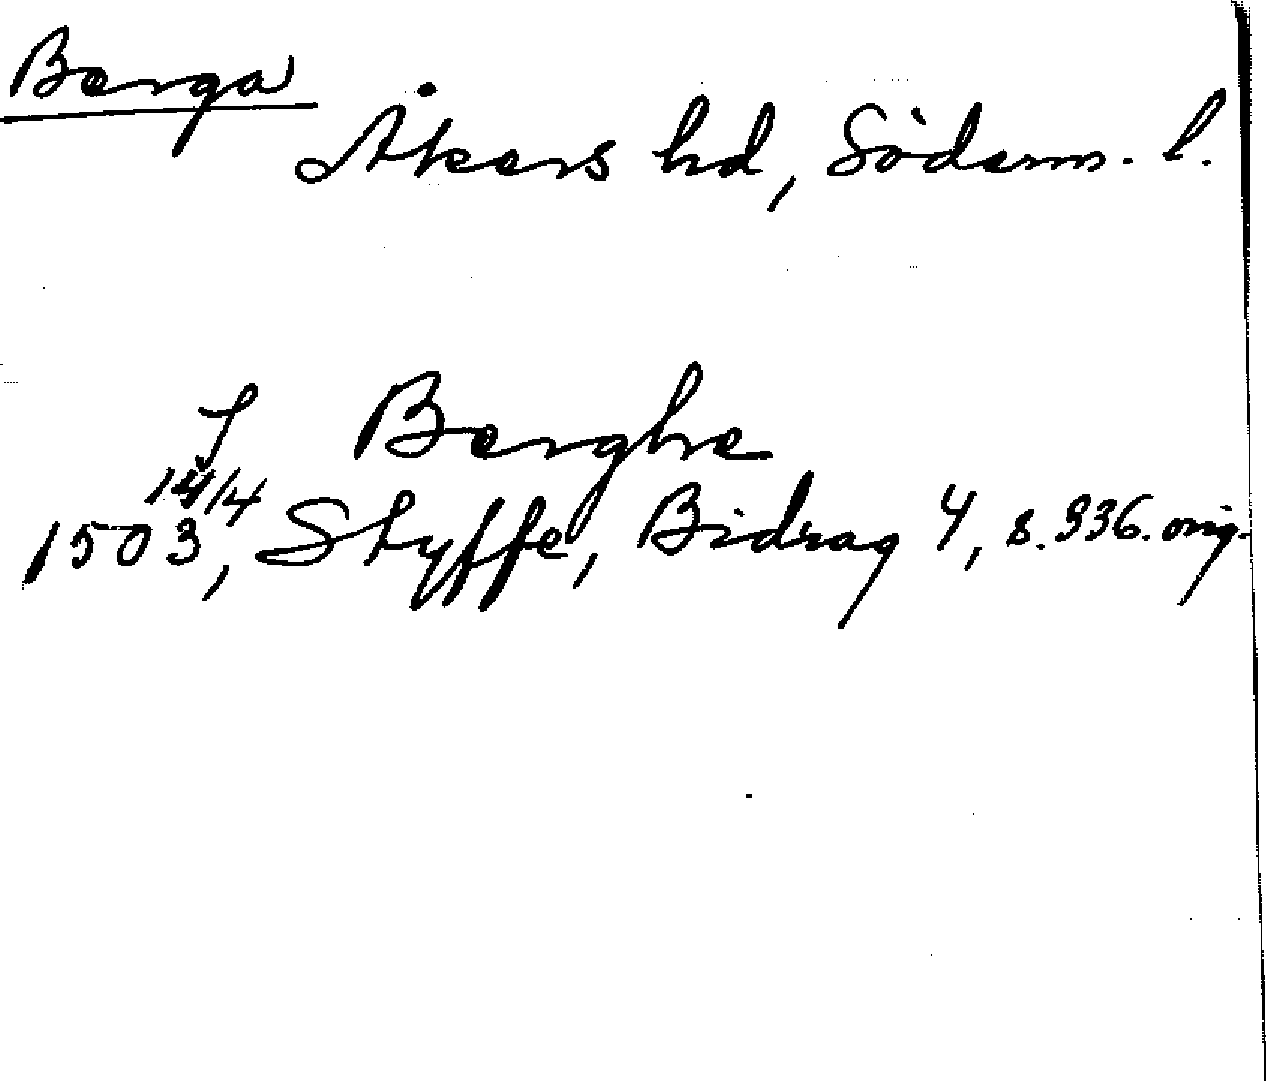 Berga
Åkers hd, Söderm. l.
J Berghe
14/4
1503, Styffe, Bidrag 4, s. 336. orig.